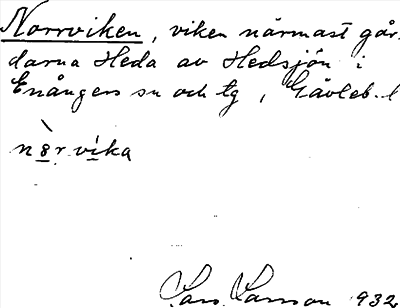 Norrviken, viken närmast går-
darna Heda av Hedsjön i
Enångers sn och tg, Gävleb. l
nørvika
Lars Larsson 1932